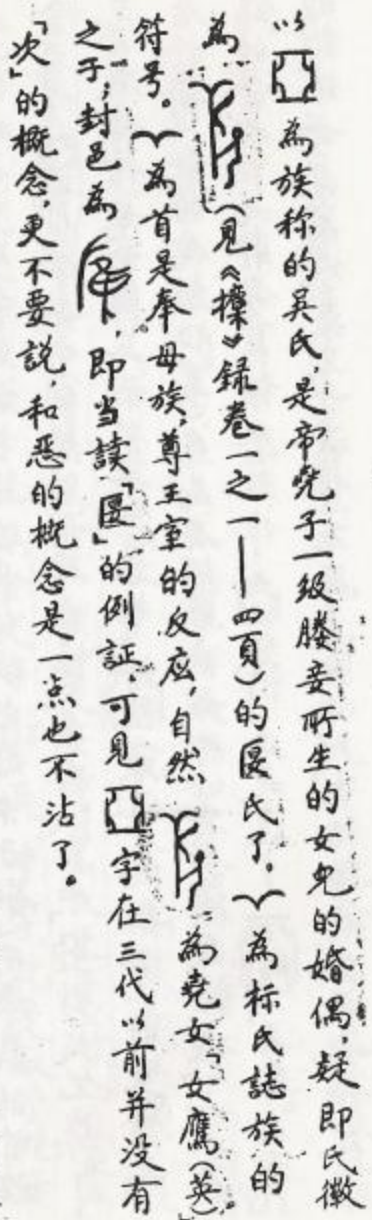 以 為族称的吴氏，是帝尧子一级媵妾所生的女儿的婚偶，疑即氏徽
為 （見《攈》録卷一之一——四頁）的匽氏了。 為标氏誌族的
符号。 為首是奉母族，尊王室的反应，自然 為堯女「女鷹（英）」
之子；封邑為 ，即当讀「匽」的例証，可見 字在三代以前并没有
「次」的概念，更不要説，和恶的概念是一点也不沾了。